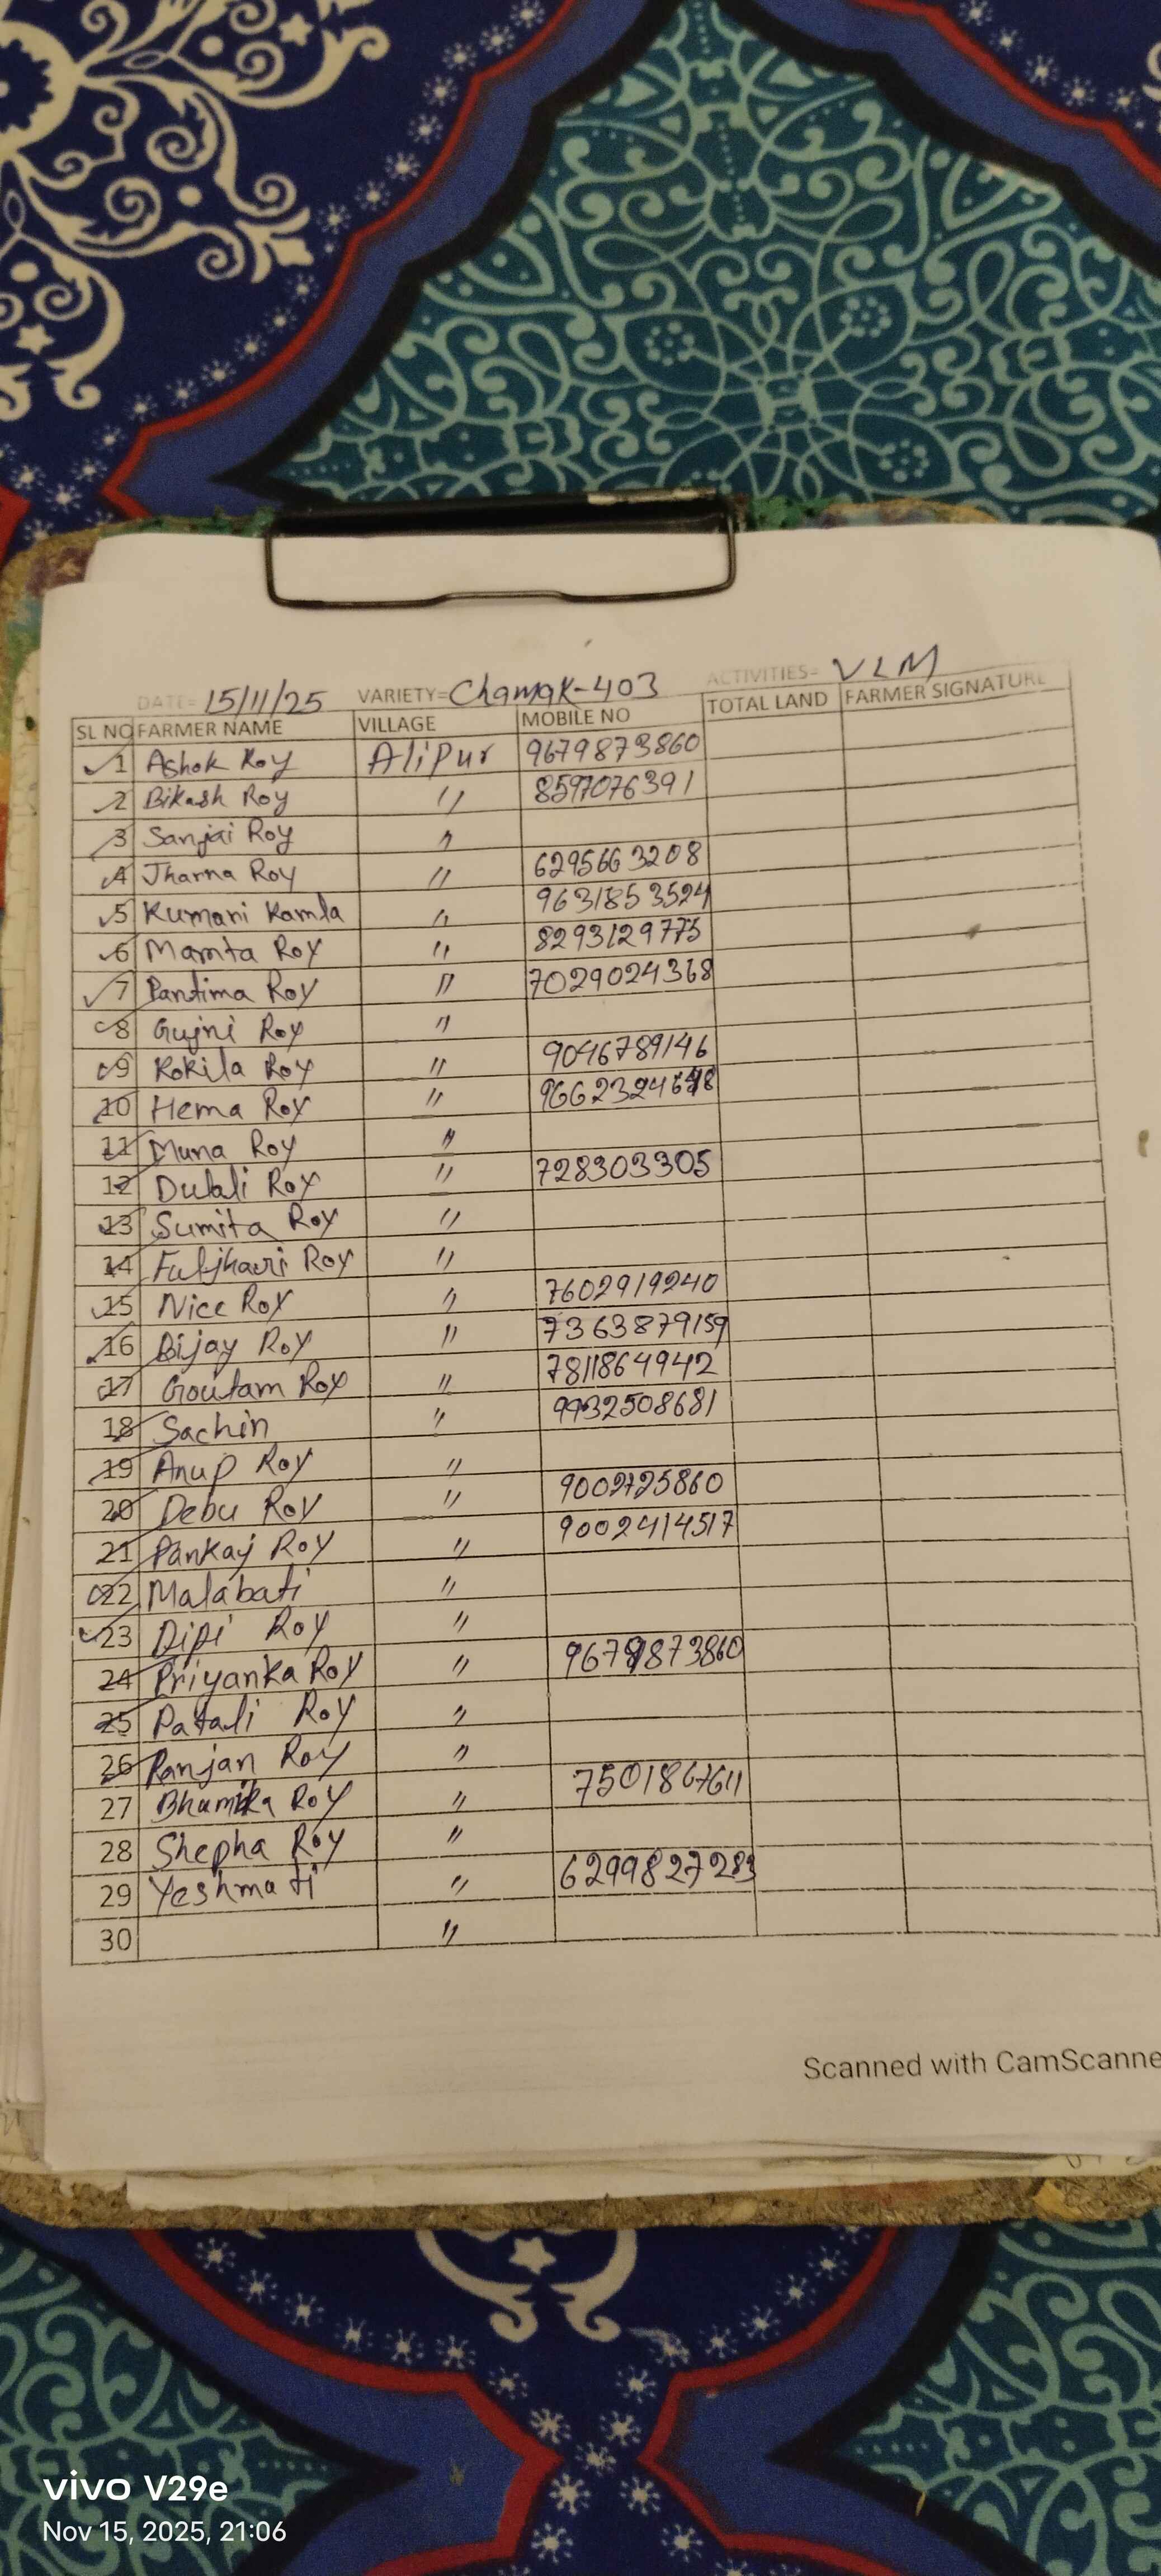 DATE= 15/11/25 VARIETY= Chamak-403 ACTIVITIES= VLM
SL NO FARMER NAME VILLAGE MOBILE NO TOTAL LAND FARMER SIGNATURE
1 Ashok Roy Alipur 9679873860
2 Bikash Roy " 8597076391
3 Sanjai Roy "
4 Jharna Roy " 6295663208
5 Kumari Kamla " 9631853524
6 Mamta Roy " 8293129775
7 Pantima Roy " 7029024368
8 Gujni Roy "
9 Kokila Roy " 9046789146
10 Hema Roy "
11 Muna Roy "
12 Dulali Roy " 728303305
13 Sumita Roy "
14 Fuljhari Roy "
15 Nice Roy " 7602919240
16 Bijay Roy " 7363879159
17 Goutam Roy " 7811864942
18 Sachin " 9932508681
19 Anup Roy "
20 Debu Roy " 9002725860
21 Pankaj Roy " 9002414517
22 Malabati "
23 Dipi Roy "
24 Priyanka Roy " 9679873860
25 Patali Roy "
26 Ranjan Roy "
27 Bhumika Roy " 7501867611
28 Shepha Roy "
29 Yeshmati " 6299827283
30 "
Scanned with CamScanne
vivo V29e
Nov 15, 2025, 21:06